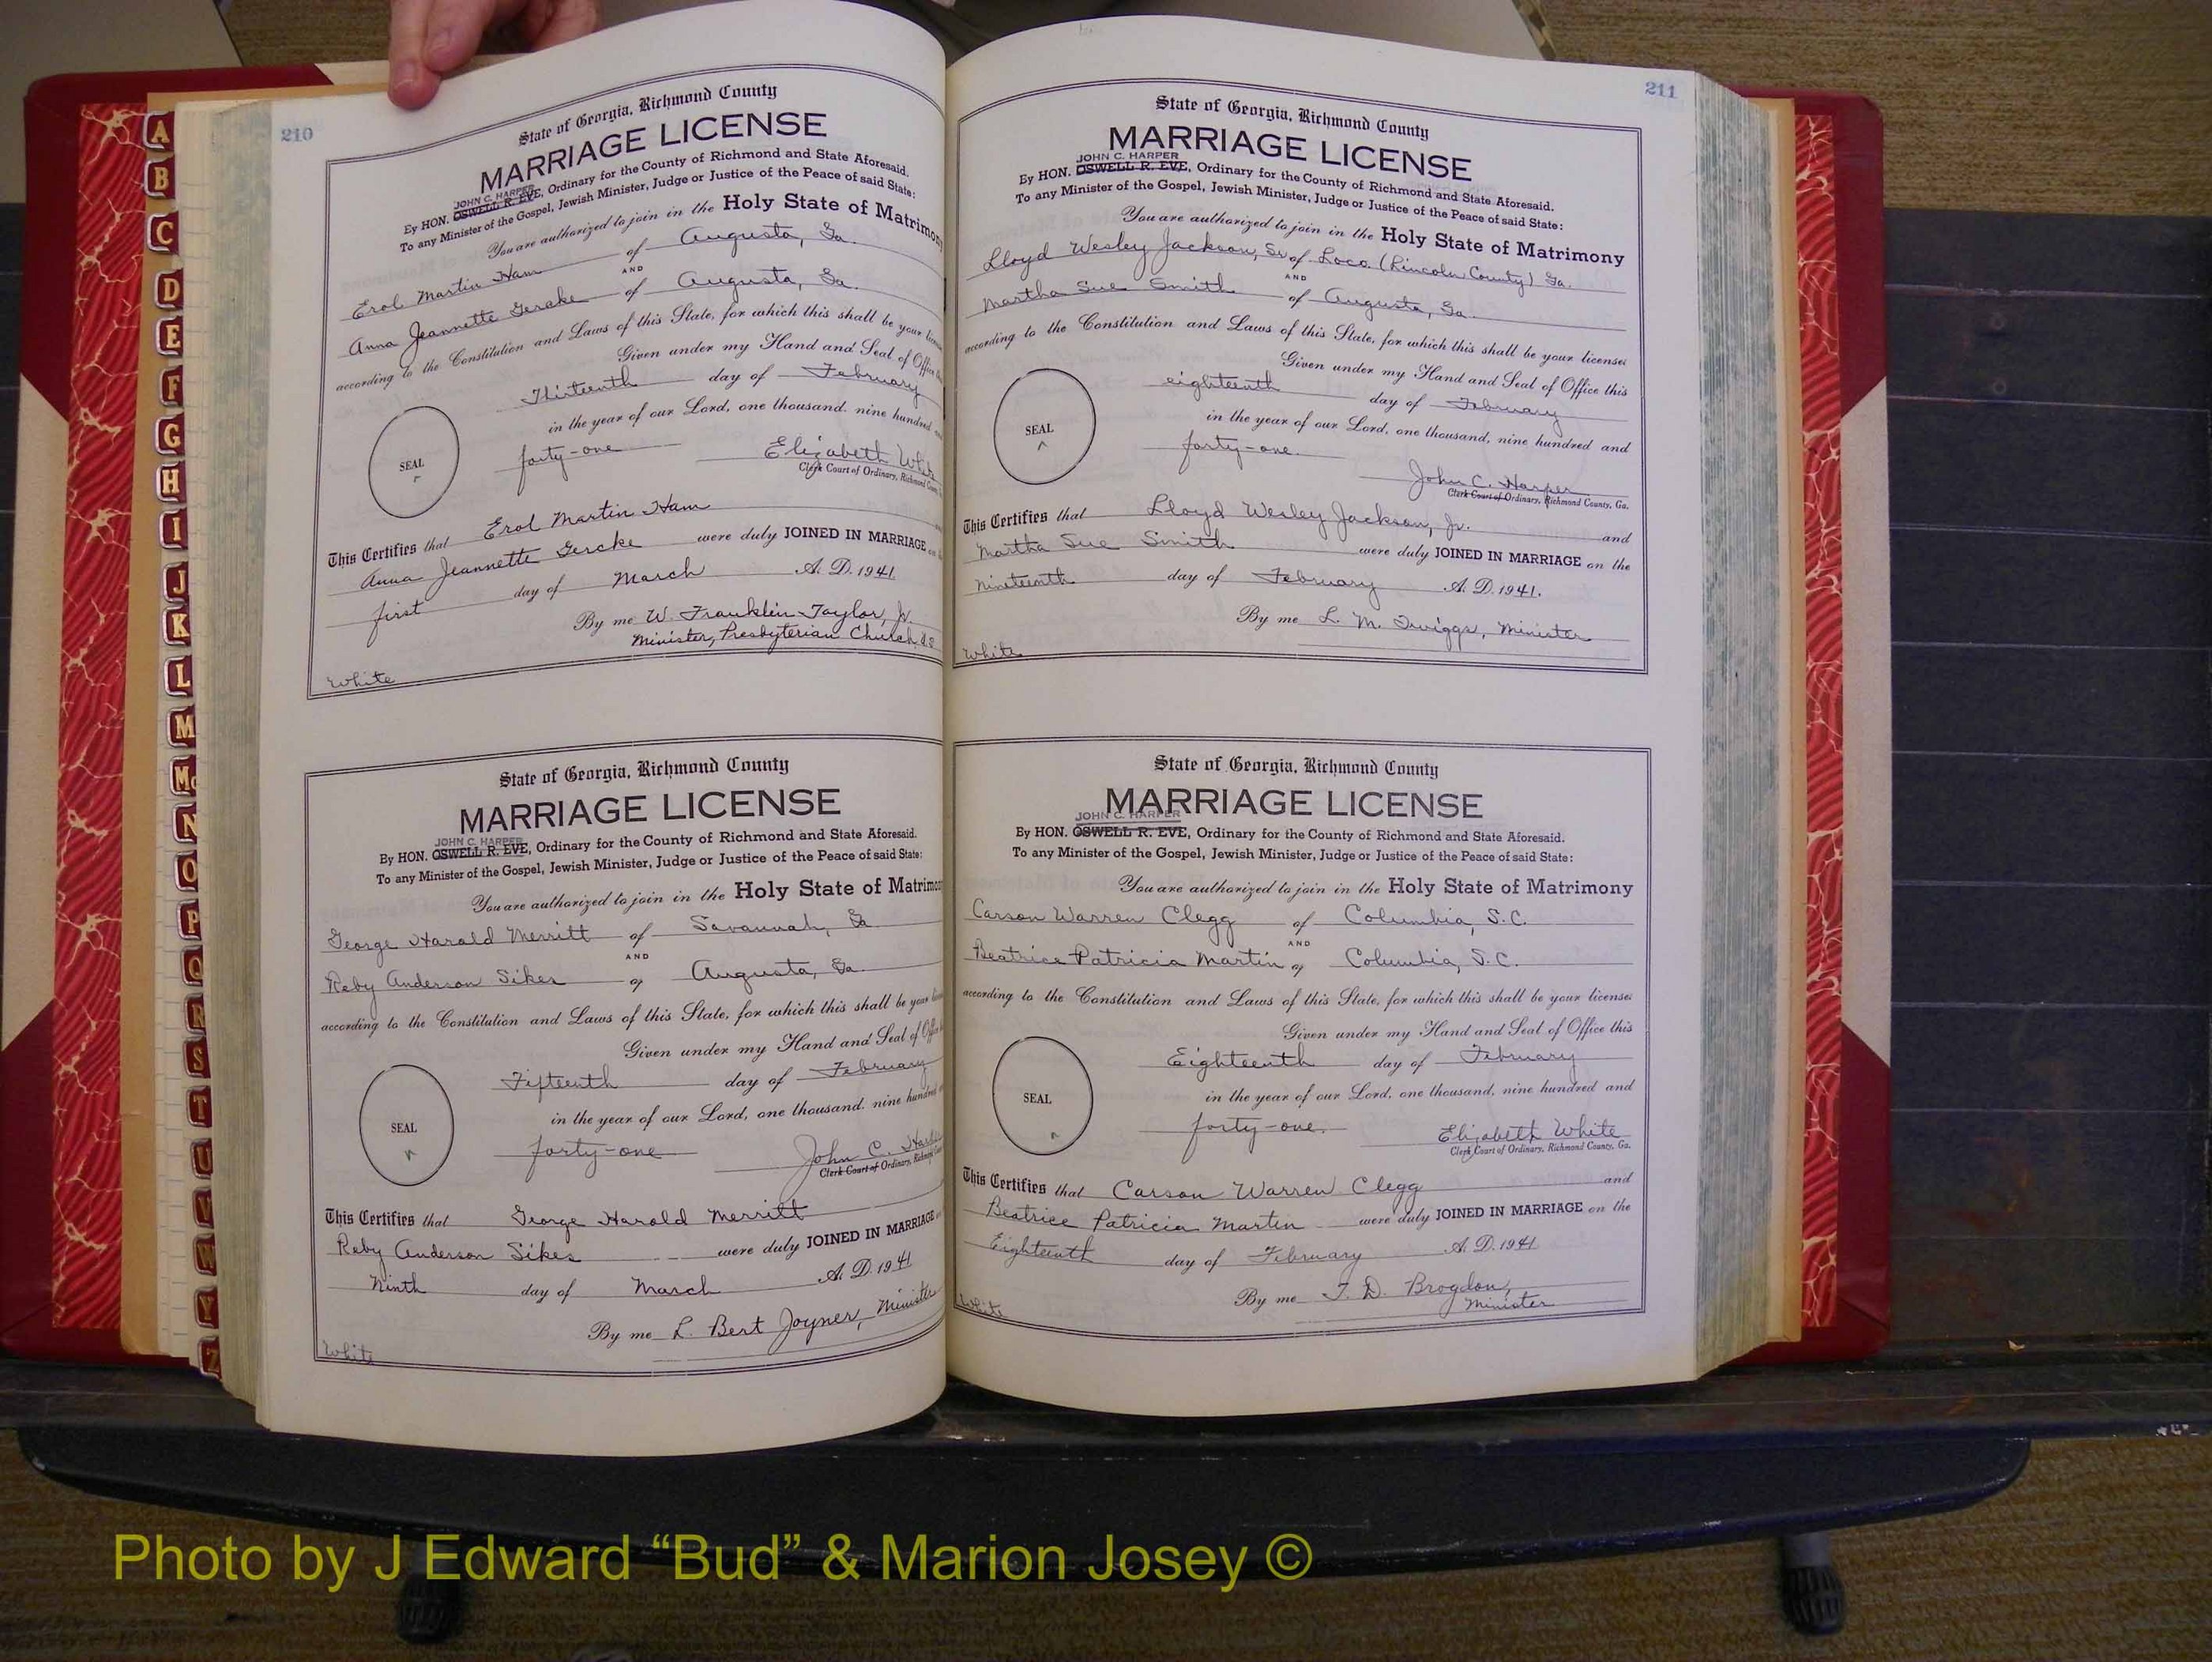 A
B
C
D
E
F
G
H
I
J
K
L
M
Mc
N
O
P
Q
R
S
T
U
V
W
Y
Z
210
State of Georgia, Richmond County
MARRIAGE LICENSE
JOHN C. HARPER
By HON. OSWELL R. EVE, Ordinary for the County of Richmond and State Aforesaid.
To any Minister of the Gospel, Jewish Minister, Judge or Justice of the Peace of said State:
You are authorized to join in the Holy State of Matrimony
Erol Martin Ham of Augusta, Ga.
AND
Anna Jeannette Gercke of Augusta, Ga.
according to the Constitution and Laws of this State, for which this shall be your
Given under my Hand and Seal of Office
Thirteenth day of February
in the year of our Lord, one thousand, nine hundred
SEAL
forty-one
Elizabeth White
Clerk Court of Ordinary, Richmond
This Certifies that Erol Martin Ham
Anna Jeannette Gercke were duly JOINED IN MARRIAGE
first day of March A. D. 1941
By me W. Franklin Taylor, Jr.
Minister, Presbyterian Church, U.S.
White
State of Georgia, Richmond County
MARRIAGE LICENSE
JOHN C. HARPER
By HON. OSWELL R. EVE, Ordinary for the County of Richmond and State Aforesaid.
To any Minister of the Gospel, Jewish Minister, Judge or Justice of the Peace of said State:
You are authorized to join in the Holy State of Matrimony
George Harald Merritt of Savannah, Ga
AND
Reby Anderson Sikes of Augusta, Ga.
according to the Constitution and Laws of this State, for which this shall be your
Given under my Hand and Seal of
Fifteenth day of February
in the year of our Lord, one thousand, nine hundred
SEAL
forty-one
John C.
Clerk Court of Ordinary,
This Certifies that George Harold Merritt
Reby Anderson Sikes were duly JOINED IN MARRIAGE
Ninth day of March A. D. 1941
By me L. Bert Joyner, Minister
White
211
State of Georgia, Richmond County
MARRIAGE LICENSE
JOHN C. HARPER
By HON. OSWELL R. EVE, Ordinary for the County of Richmond and State Aforesaid.
To any Minister of the Gospel, Jewish Minister, Judge or Justice of the Peace of said State:
You are authorized to join in the Holy State of Matrimony
Lloyd Wesley Jackson, of Loco (Lincoln County) Ga.
AND
Martha Sue Smith of Augusta, Ga.
according to the Constitution and Laws of this State, for which this shall be your license:
Given under my Hand and Seal of Office this
eighteenth day of February
in the year of our Lord, one thousand, nine hundred and
SEAL
forty-one.
John C. Harper
Clerk Court of Ordinary, Richmond County, Ga.
This Certifies that Lloyd Wesley Jackson, Jr. and
Martha Sue Smith were duly JOINED IN MARRIAGE on the
nineteenth day of February A. D. 1941.
By me L. M. Twiggs, Minister
White
State of Georgia, Richmond County
MARRIAGE LICENSE
JOHN C. HARPER
By HON. OSWELL R. EVE, Ordinary for the County of Richmond and State Aforesaid.
To any Minister of the Gospel, Jewish Minister, Judge or Justice of the Peace of said State:
You are authorized to join in the Holy State of Matrimony
Carson Warren Clegg of Columbia, S.C.
AND
Beatrice Patricia Martin of Columbia, S.C.
according to the Constitution and Laws of this State, for which this shall be your license:
Given under my Hand and Seal of Office this
Eighteenth day of February
in the year of our Lord, one thousand, nine hundred and
SEAL
forty-one.
Elizabeth White
Clerk Court of Ordinary, Richmond County, Ga.
This Certifies that Carson Warren Clegg and
Beatrice Patricia Martin were duly JOINED IN MARRIAGE on the
Eighteenth day of February A. D. 1941
By me T. D. Brogdon,
Minister
White
Photo by J Edward “Bud” & Marion Josey ©